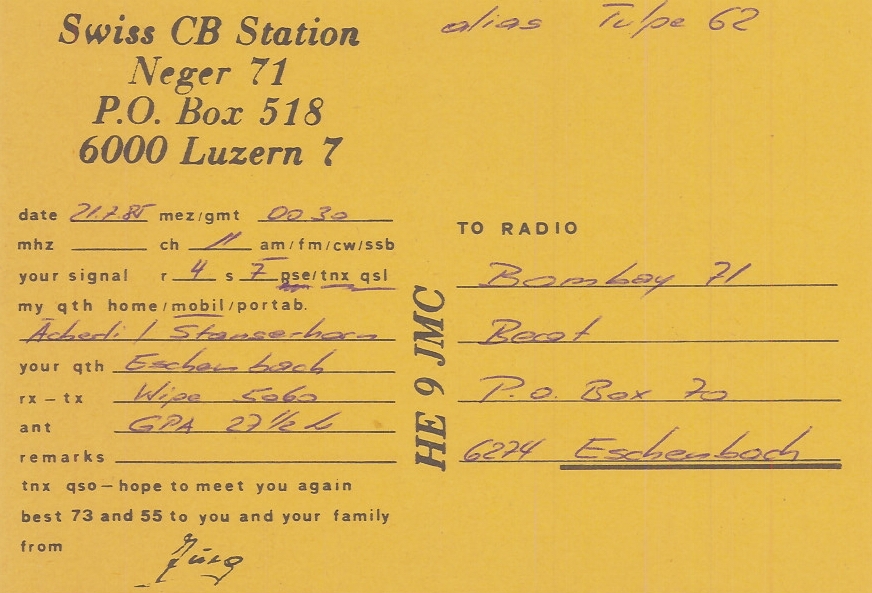 Swiss CB Station
Neger 71
P.O. Box 518
6000 Luzern 7
alias Tulpe 62
date 21.7.85 mez/gmt 00 30
mhz ch 11 am/fm/cw/ssb
your signal r 4 s 7 pse/tnx qsl
my qth home/mobil/portab.
Ächerli / Stanserhorn
your qth Eschenbach
rx-tx Wipe 5060
ant GPA 27 1/2 L
remarks
tnx qso-hope to meet you again
best 73 and 55 to you and your family
from Jürg
HE 9 JMC
TO RADIO
Bombay 71
Beat
P.o. Box 70
6274 Eschenbach